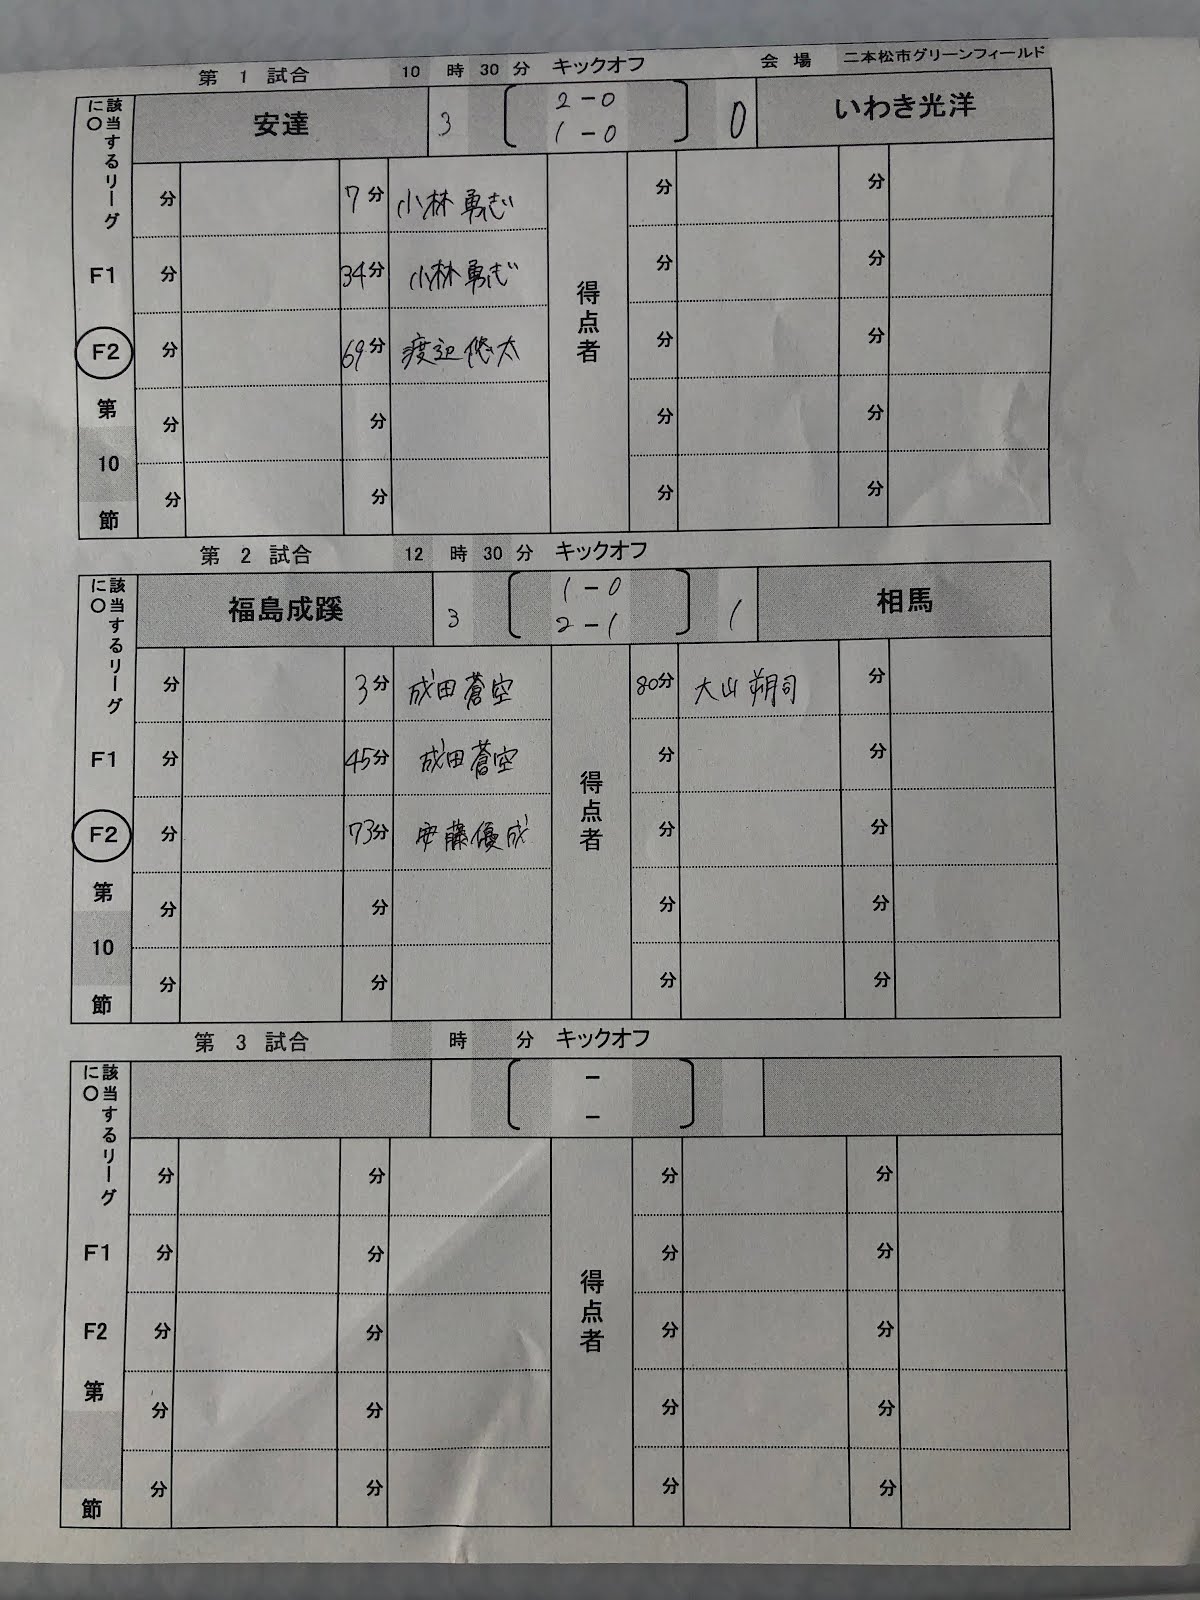 第 1 試合 10 時 30 分 キックオフ 会場 二本松市グリーンフィールド
該当するリーグに〇
安達 3 2-0 0 いわき光洋
1-0
分 7分 小林勇志 分 分
F1 分 34分 小林勇志 分 分
得点者
F2 分 69分 渡辺悠太 分 分
第 分 分 分 分
10
節 分 分 分 分
第 2 試合 12 時 30 分 キックオフ
該当するリーグに〇
福島成蹊 3 1-0 1 相馬
2-1
分 3分 成田蒼空 80分 大山朔司 分
F1 分 45分 成田蒼空 分 分
得点者
F2 分 73分 安藤優成 分 分
第 分 分 分 分
10
節 分 分 分 分
第 3 試合 時 分 キックオフ
該当するリーグに〇
-
-
分 分 分 分
F1 分 分 分 分
得点者
F2 分 分 分 分
第 分 分 分 分
節 分 分 分 分